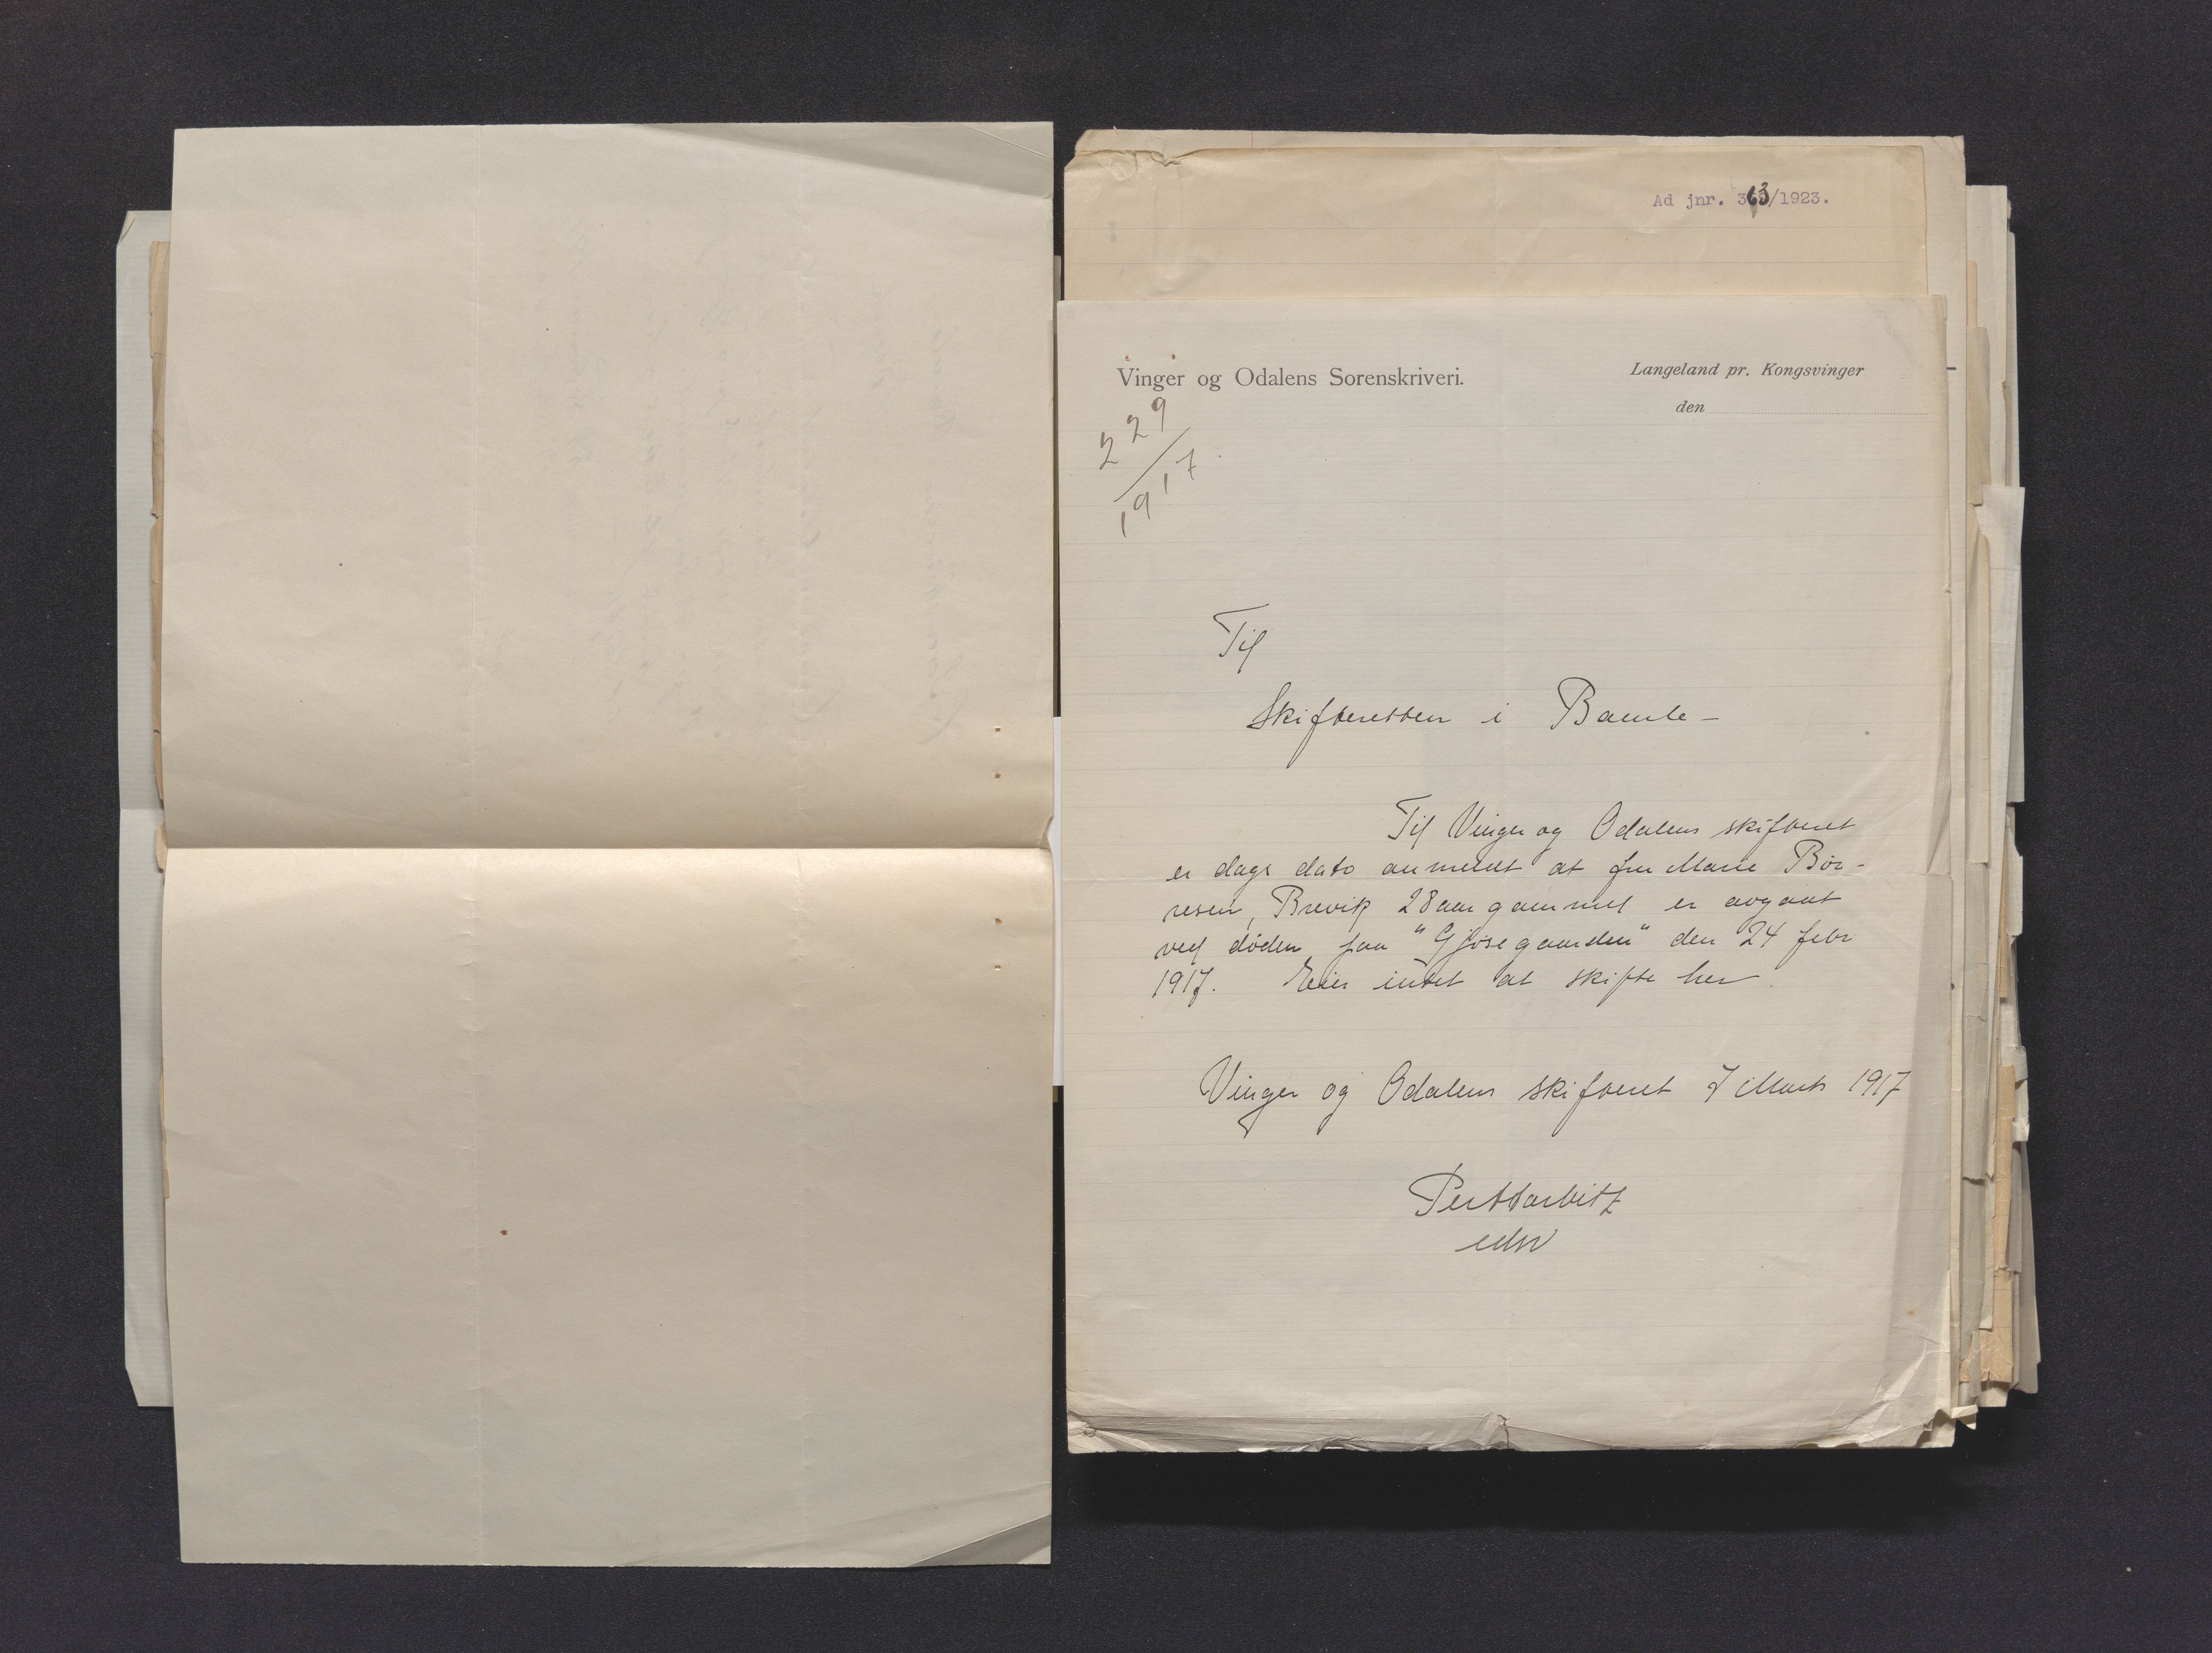 Ad jnr. 363/1923.
Vinger og Odalens Sorenskriveri.
Langeland pr. Kongsvinger
den
229
1917.
Til
Skifteretten i Bamle -
Til Vinger og Odalens skifteret
er dags dato anmeldt at fru Marie Bør-
resen, Brevik 28 aar gammel er avgaat
ved døden paa "Gjøsegaarden" den 24 febr
1917. Eier intet at skifte her.
Vinger og Odalens skifteret 7 Marts 1917